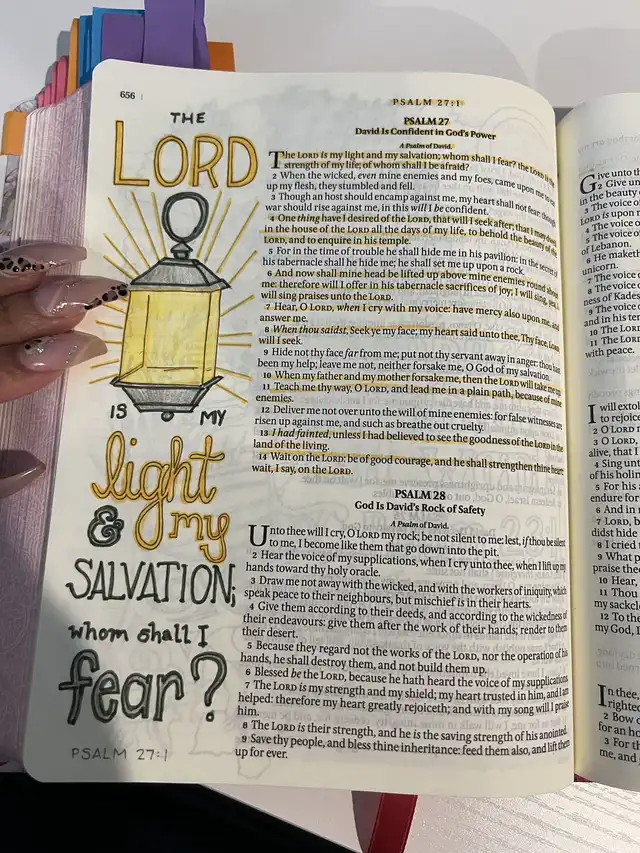 656
THE
LORD
IS MY
light
& my
SALVATION;
whom shall I
fear?
PSALM 27:1
PSALM 27:1
PSALM 27
David Is Confident in God's Power
A Psalm of David.
The LORD is my light and my salvation; whom shall I fear? the LORD is the
strength of my life; of whom shall I be afraid?
2 When the wicked, even mine enemies and my foes, came upon me to eat
up my flesh, they stumbled and fell.
3 Though an host should encamp against me, my heart shall not fear: though
war should rise against me, in this will I be confident.
4 One thing have I desired of the LORD, that will I seek after; that I may dwell
in the house of the LORD all the days of my life, to behold the beauty of the
LORD, and to enquire in his temple.
5 For in the time of trouble he shall hide me in his pavilion: in the secret of
his tabernacle shall he hide me; he shall set me up upon a rock.
6 And now shall mine head be lifted up above mine enemies round about
me: therefore will I offer in his tabernacle sacrifices of joy; I will sing, yea, I
will sing praises unto the LORD.
7 Hear, O LORD, when I cry with my voice: have mercy also upon me, and
answer me.
8 When thou saidst, Seek ye my face; my heart said unto thee, Thy face, LORD,
will I seek.
9 Hide not thy face far from me; put not thy servant away in anger: thou hast
been my help; leave me not, neither forsake me, O God of my salvation.
10 When my father and my mother forsake me, then the LORD will take me up.
11 Teach me thy way, O LORD, and lead me in a plain path, because of mine
enemies.
12 Deliver me not over unto the will of mine enemies: for false witnesses are
risen up against me, and such as breathe out cruelty.
13 I had fainted, unless I had believed to see the goodness of the LORD in the
land of the living.
14 Wait on the LORD: be of good courage, and he shall strengthen thine heart:
wait, I say, on the LORD.
PSALM 28
God Is David's Rock of Safety
A Psalm of David.
Unto thee will I cry, O LORD my rock; be not silent to me: lest, if thou be silent
to me, I become like them that go down into the pit.
2 Hear the voice of my supplications, when I cry unto thee, when I lift up my
hands toward thy holy oracle.
3 Draw me not away with the wicked, and with the workers of iniquity, which
speak peace to their neighbours, but mischief is in their hearts.
4 Give them according to their deeds, and according to the wickedness of
their endeavours: give them after the work of their hands; render to them
their desert.
5 Because they regard not the works of the LORD, nor the operation of his
hands, he shall destroy them, and not build them up.
6 Blessed be the LORD, because he hath heard the voice of my supplications.
7 The LORD is my strength and my shield; my heart trusted in him, and I am
helped: therefore my heart greatly rejoiceth; and with my song will I praise
him.
8 The LORD is their strength, and he is the saving strength of his anointed.
9 Save thy people, and bless thine inheritance: feed them also, and lift them
up for ever.
Give unto th
2 Give un
in the beauty
3 The voice o
LORD is upon
4 The voice o
5 The voice o
of Lebanon.
6 He maketh
unicorn.
7 The voice o
8 The voice o
ness of Kades
9 The voice o
and in his tem
10 The LORD
11 The LORD
with peace.
I will extol
to rejoice
2 O LORD m
3 O LORD,
alive, that I
4 Sing unt
of his holin
5 For his a
endure for
6 And in m
7 LORD, b
didst hide
8 I cried t
9 What p
praise thee
10 Hear,
11 Thou
my sackcl
12 To the
my God, I
In thee,
righted
2 Bow d
for an ho
3 For th
me, and